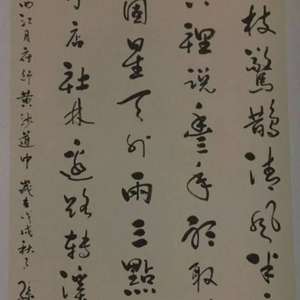 枝驚鵲清風半
裡說豐年聽取
個星天外兩三點
店社林邊路轉溪
西江月夜行黃沙道中歲在戊戌秋